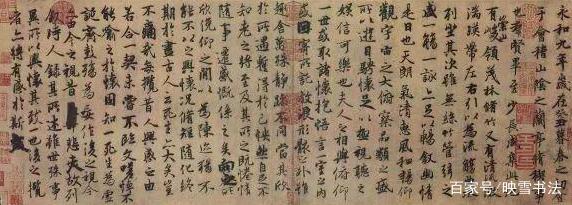 永和九年歲在癸丑暮春之初會
于會稽山陰之蘭亭脩稧事
也羣賢畢至少長咸集此地
有崇山峻領茂林脩竹又有清流激
湍暎帶左右引以為流觴曲水
列坐其次雖無絲竹管弦之
盛一觴一詠亦足以暢叙幽情
是日也天朗氣清惠風和暢仰
觀宇宙之大俯察品類之盛
所以遊目騁懷足以極視聽之
娛信可樂也夫人之相與俯仰
一世或取諸懷抱悟言一室之內
或因寄所託放浪形骸之外雖
趣舍萬殊靜躁不同當其欣
於所遇暫得於己怏然自足不
知老之將至及其所之既惓情
隨事遷感慨係之矣向之所
欣俛仰之閒以為陳迹猶不
能不以之興懷況脩短隨化終
期於盡古人云死生亦大矣豈
不痛哉每攬昔人興感之由
若合一契未嘗不臨文嗟悼不
能喻之於懷固知一死生為虛
誕齊彭殤為妄作後之視今
亦由今之視昔悲夫故列
敘時人錄其所述雖世殊事
異所以興懷其致一也後之攬
者亦將有感於斯文
百家号/映雪书法